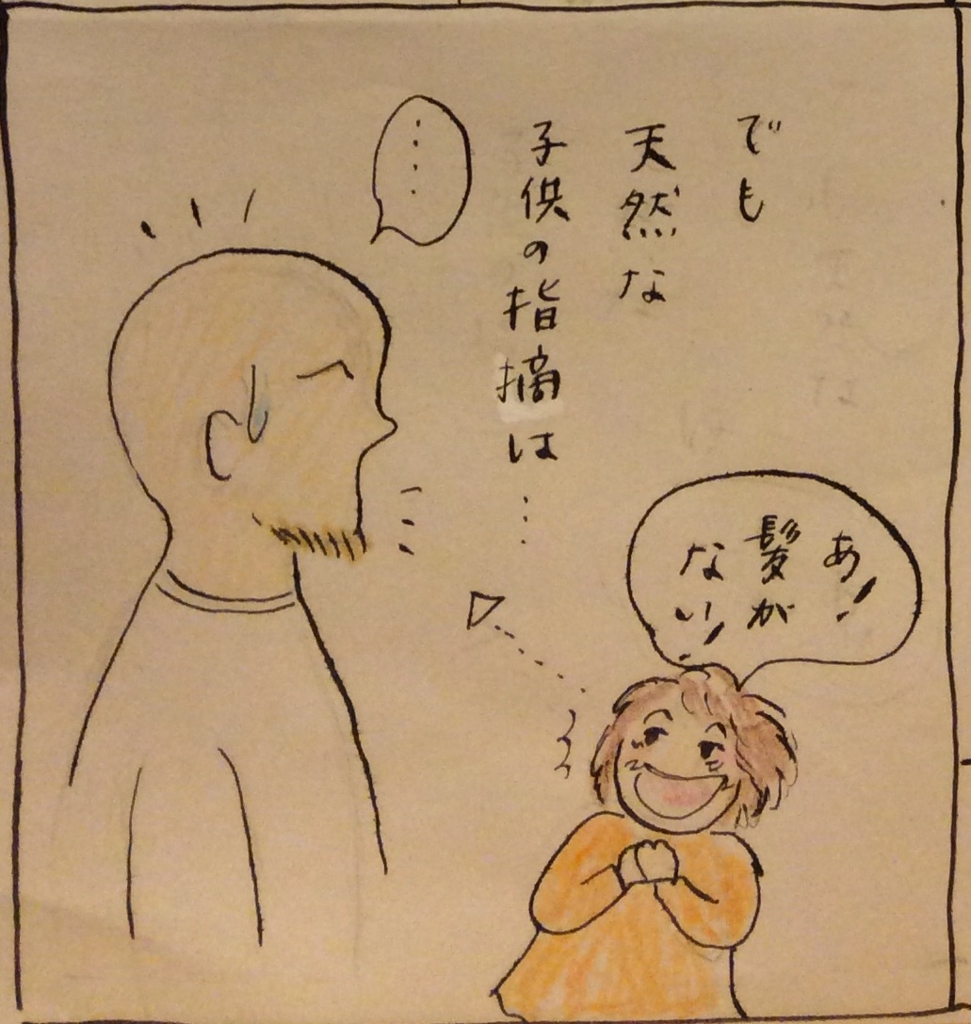 でも
天然な
子供の指摘は…
……
あ!
髪が
ない!